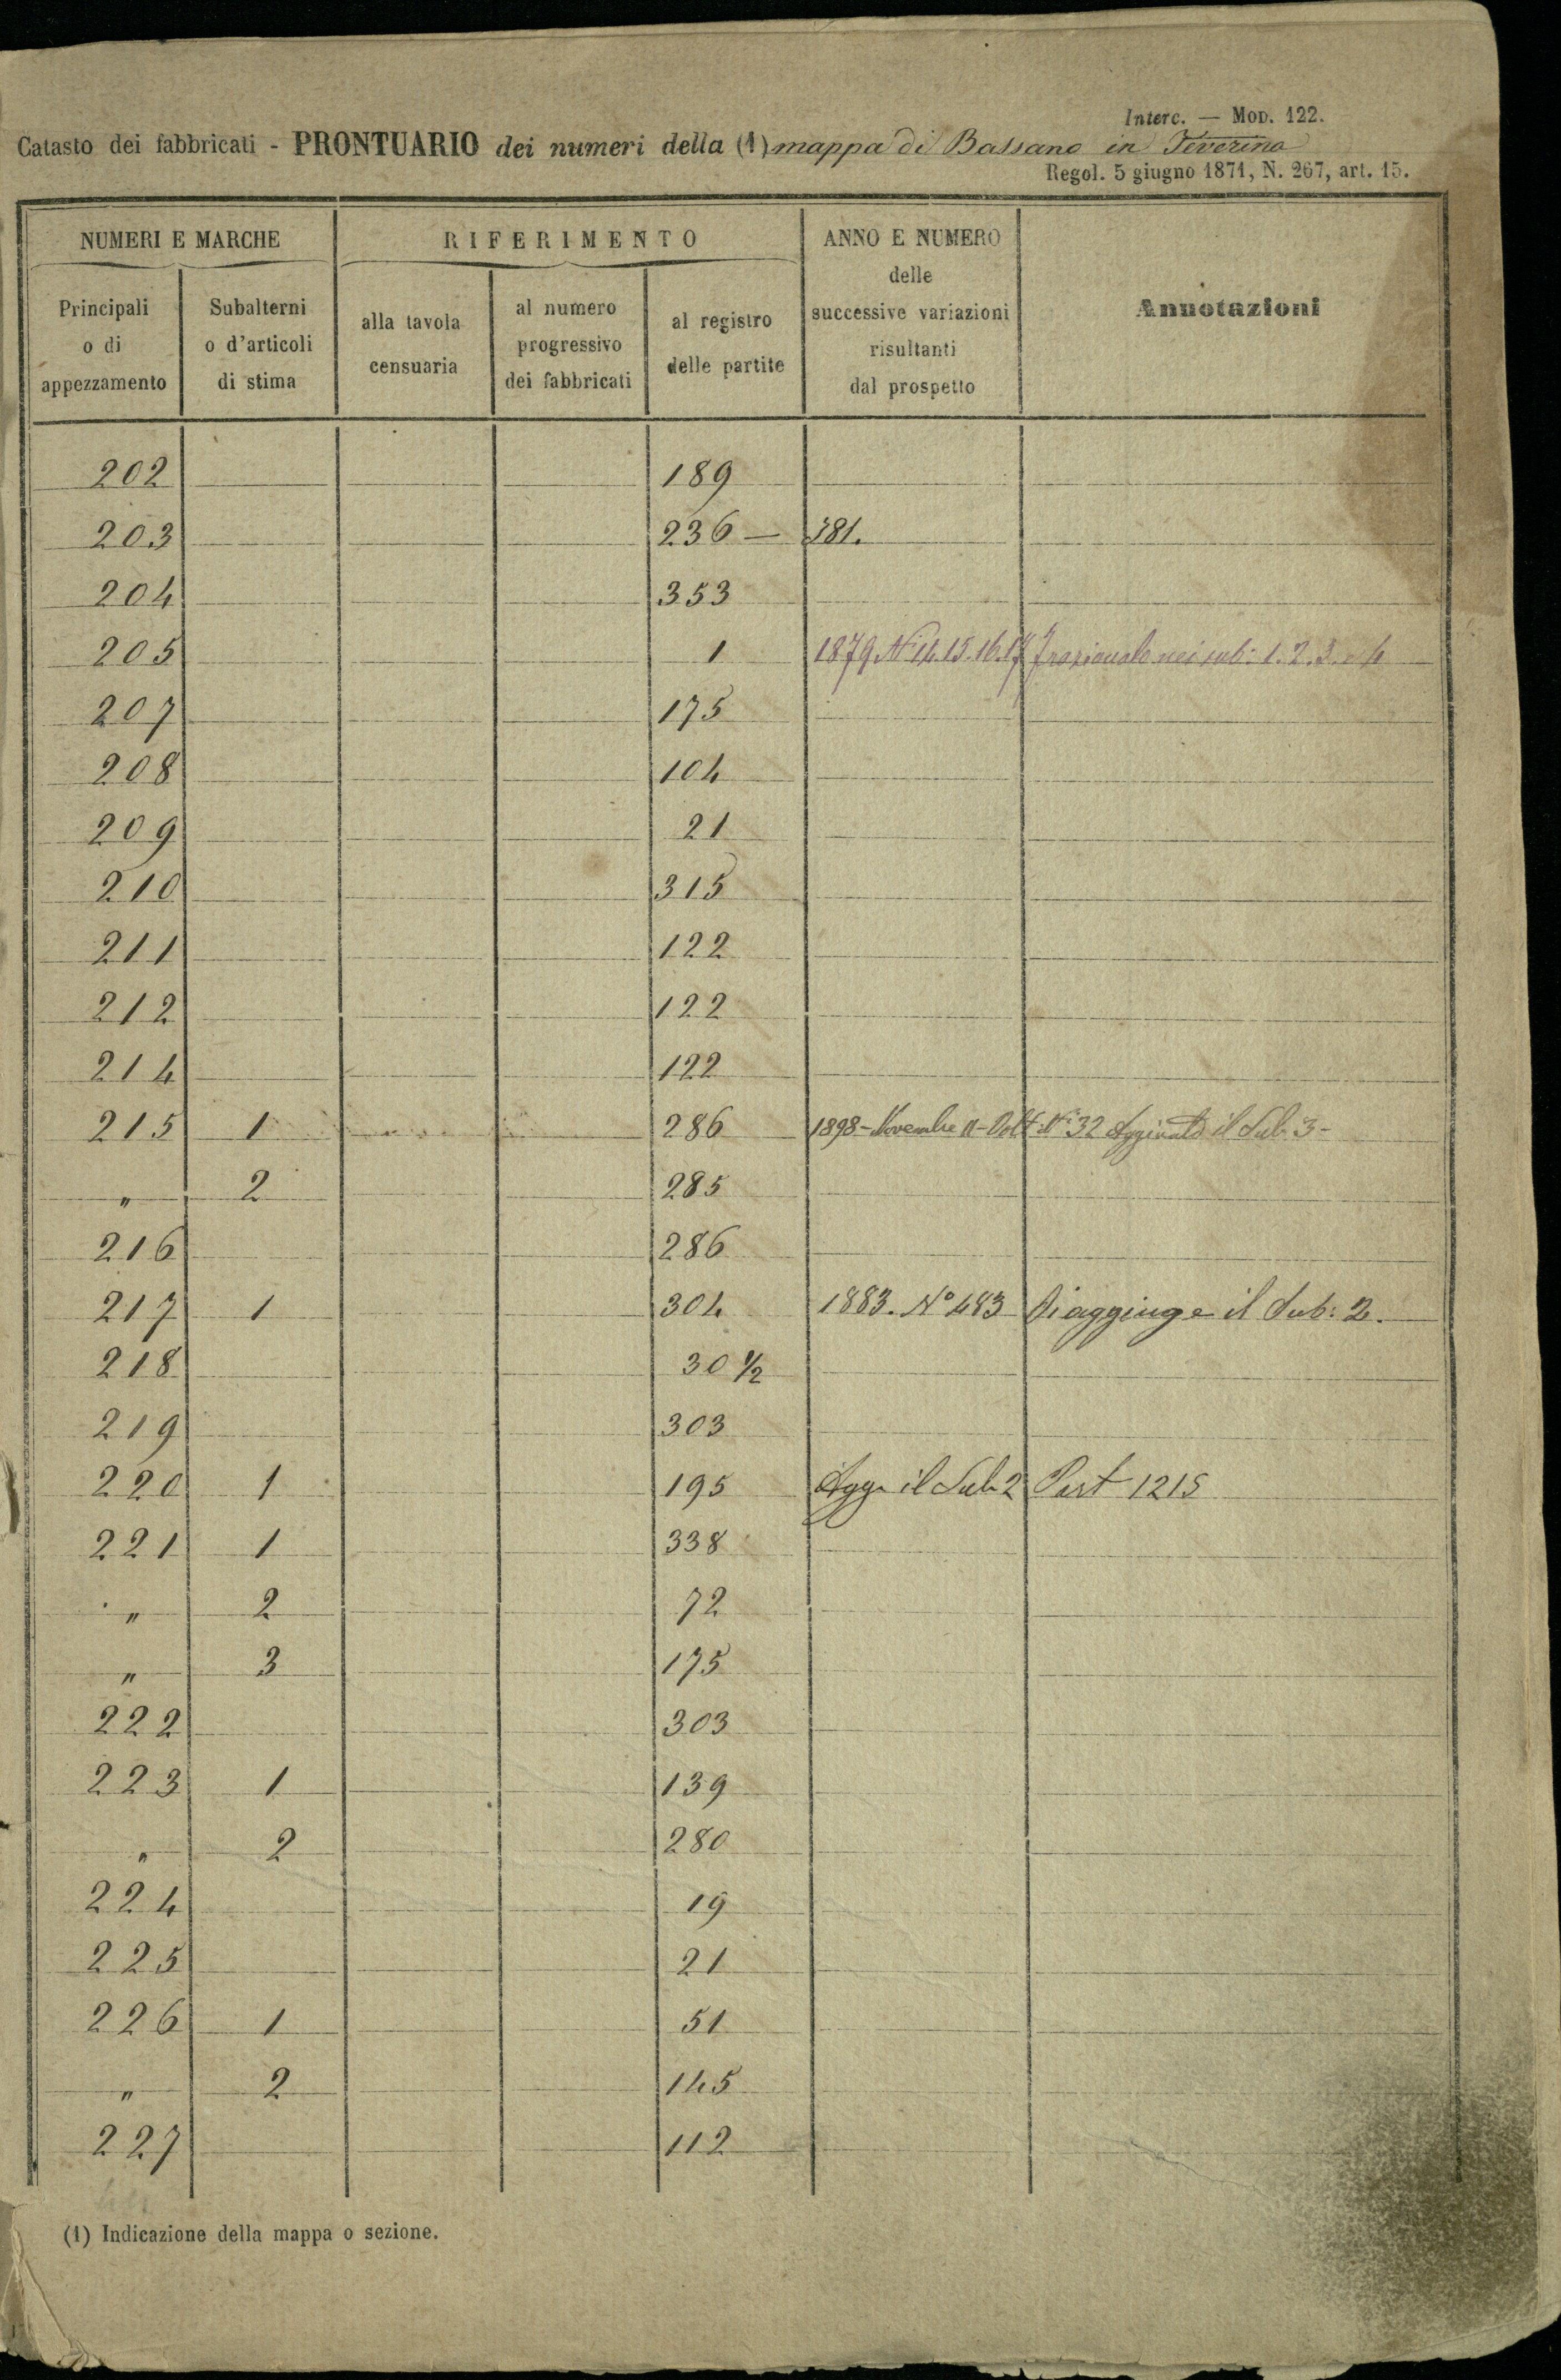 Interc. — Mod. 122.
Catasto dei fabbricati - PRONTUARIO dei numeri della (1) mappa di Bassano in Teverina
Regol. 5 giugno 1871, N. 267, art. 15.
NUMERI E MARCHE RIFERIMENTO ANNO E NUMERO delle successive variazioni risultanti dal prospetto Annotazioni
Principali o di appezzamento Subalterni o d'articoli di stima alla tavola censuaria al numero progressivo dei fabbricati al registro delle partite
202 189
203 236 — 381.
204 353
205 1 1879 Ni 14.15.16.17 Frazionato nei sub: 1.2.3. e 4
207 175
208 104
209 21
210 315
211 122
212 122
214 122
215 1 286 1898 - Novembre 11 - Volt: N° 32 Aggiunto il Sub. 3 -
" 2 285
216 286
217 1 304 1883. N° 483 Si aggiunge il Sub: 2.
218 30 1/2
219 303
220 1 195 Agg. il Sub 2 Part 1215
221 1 338
" 2 72
" 3 175
222 303
223 1 139
" 2 280
224 19
225 21
226 1 51
" 2 145
227 112
(1) Indicazione della mappa o sezione.